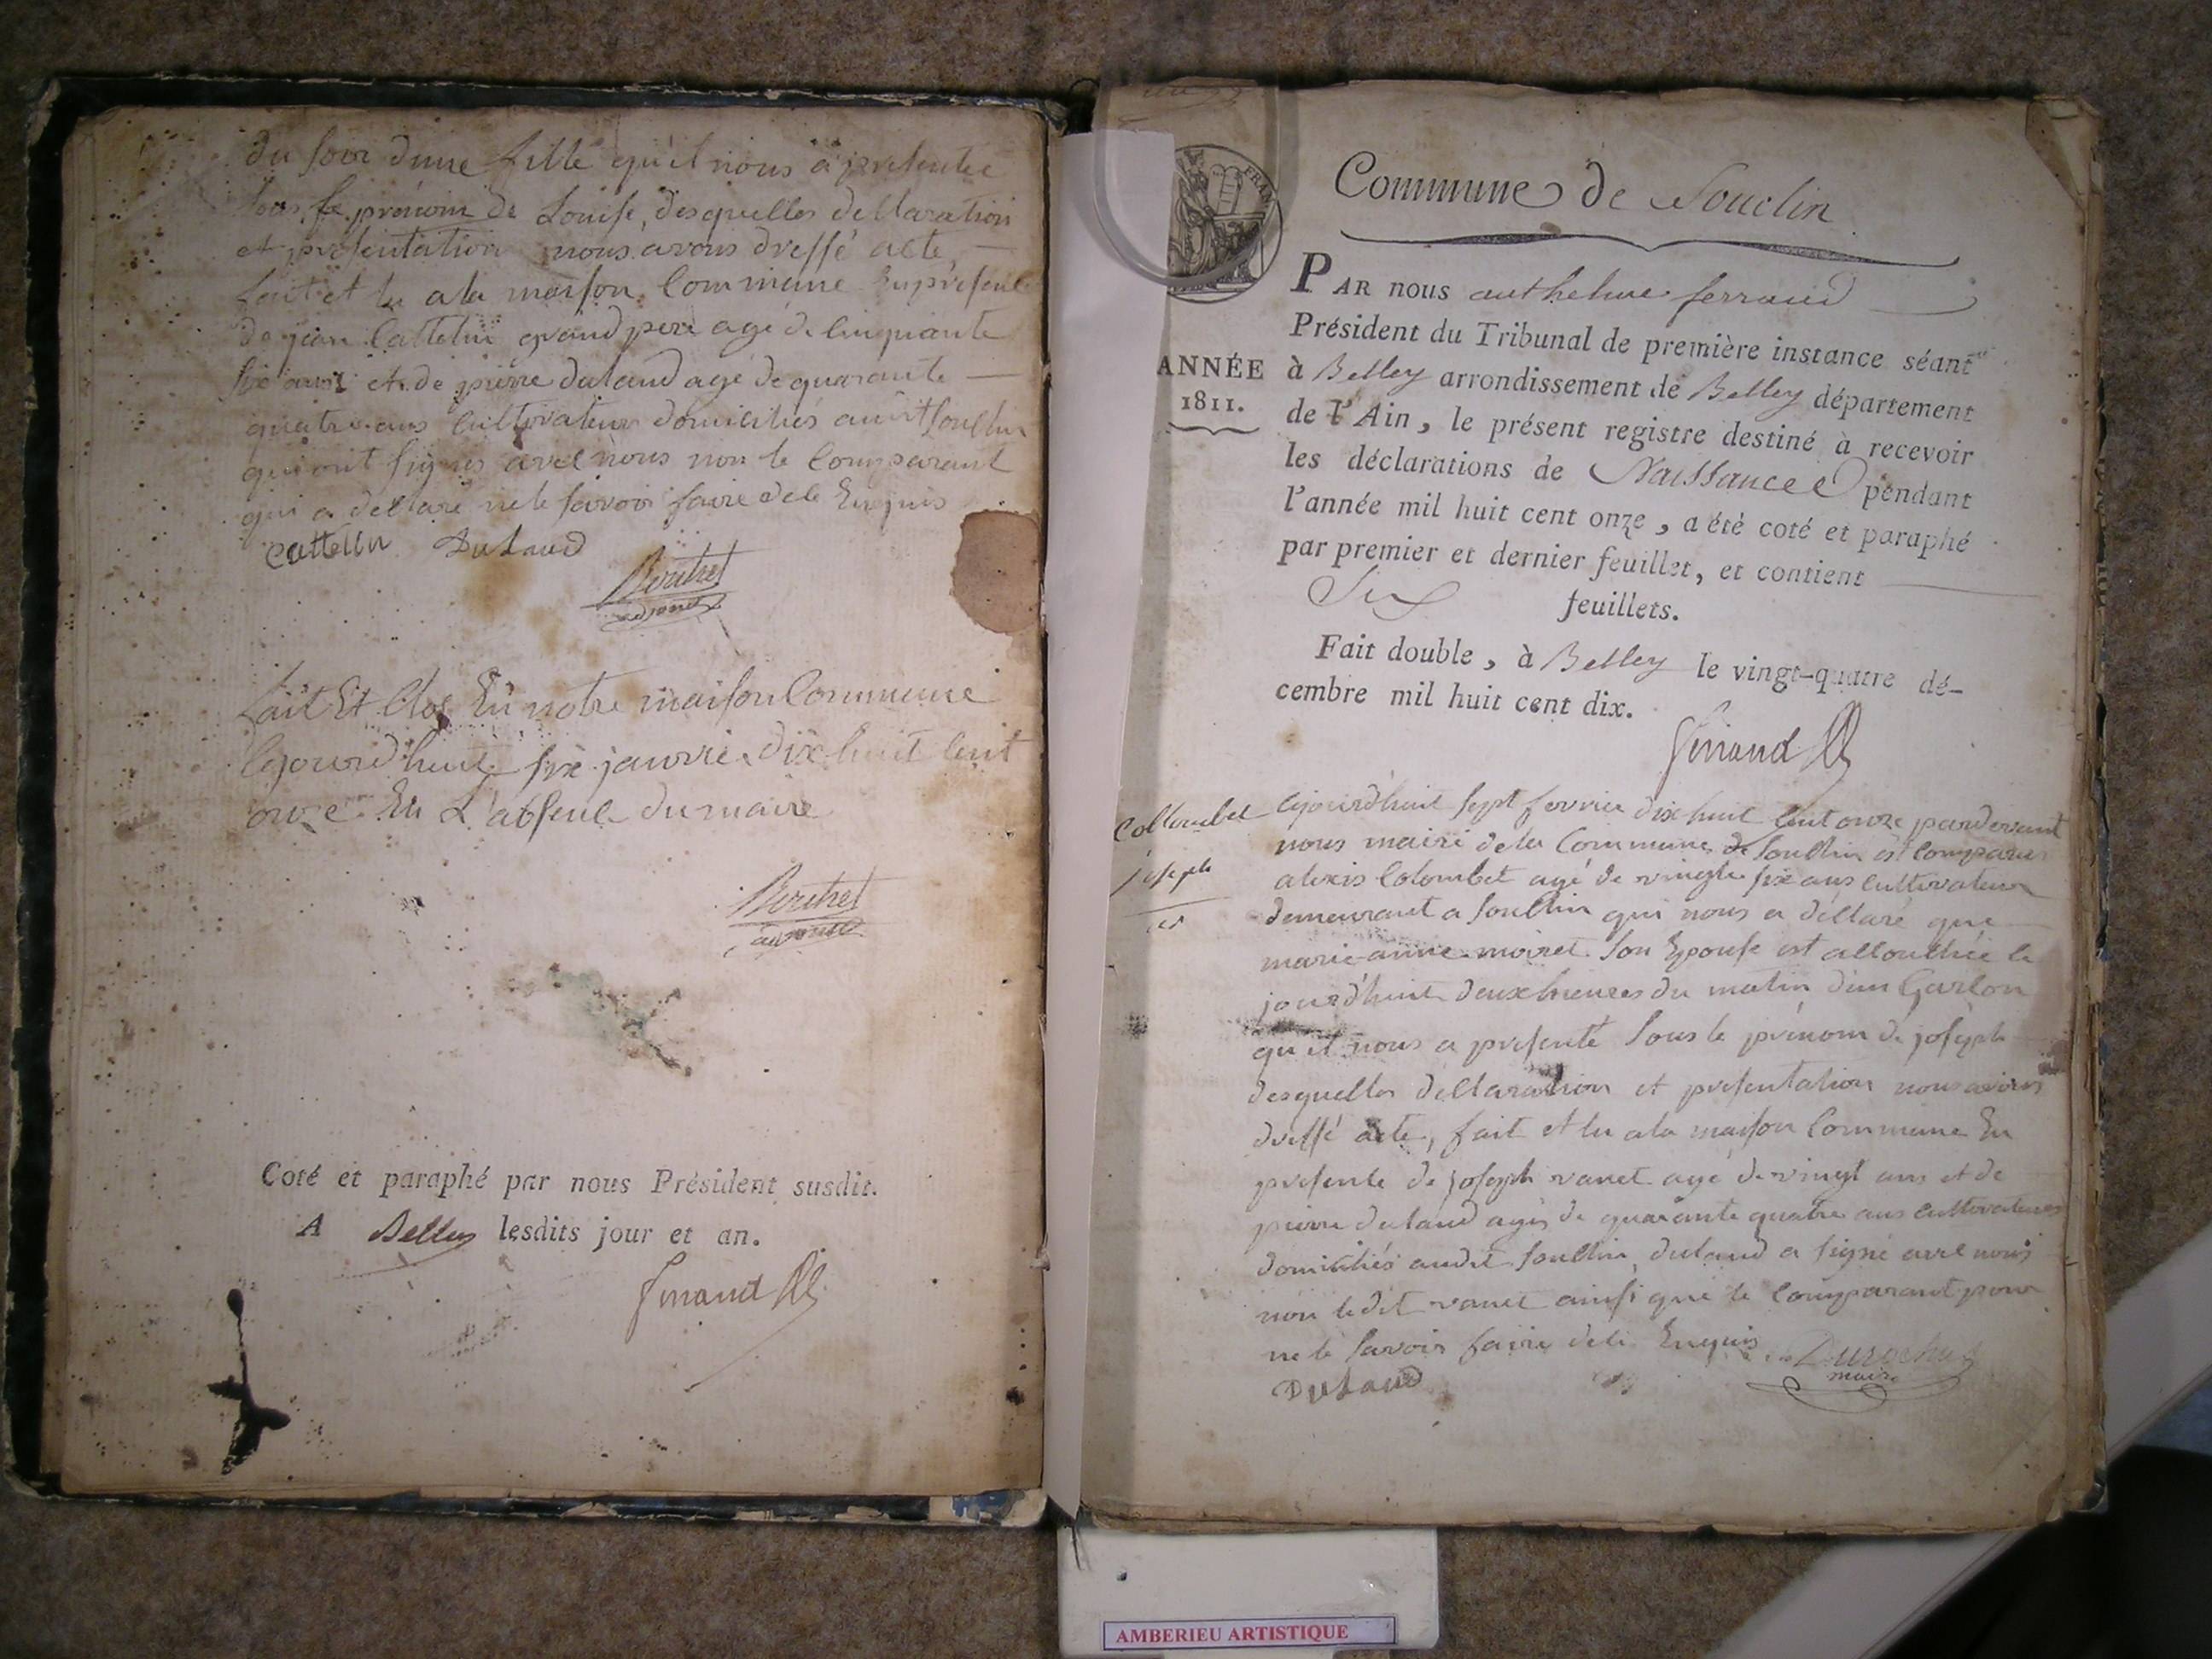 du soir dune fille qu'il nous a presentée
sous le prénom de Louise, desquelles declaration
et presentation nous avons dressé acte,
fait et lu a la maison Commune En présence
de jean Cattelin grand pere agé de cinquante
six ans et de pierre dulaud agé de quarante
quatre ans cultivateurs domiciliés audit souclin
qui ont signés avec nous non le comparant
qui a declaré ne le savoir faire de ce Enquis
Cattelin Dulaud
Berthet
adjoint
fait Et Clos En notre maison Commune
Cejourdhuit six janvié dix huit cent
onze En L'absence du maire
Berthet
adjoint
Coté et paraphé par nous Président susdit.
A Belley lesdits jour et an.
ferrand
Commune de Souclin
FRAN
PAR nous anthelme ferrand
Président du Tribunal de première instance séant
ANNÉE
1811.
à Belley arrondissement de Belley département
de l'Ain, le présent registre destiné à recevoir
les déclarations de Naissance pendant
l'année mil huit cent onze, a été coté et paraphé
par premier et dernier feuillet, et contient
Six feuillets.
Fait double, à Belley le vingt-quatre dé-
cembre mil huit cent dix.
ferrand
Collombet
joseph
Cejourdhuit sept fevrier dix huit cent onze pardevant
nous maire de la Commune de souclin est comparu
alexis Colombet agé de vingt six ans cultivateur
demeurant a souclin qui nous a déclaré que
marie-anne moiret son Epouse est accouchée ce
jourdhuit deux heures du matin d'un Garcon
qu'il nous a présenté sous le prénom de joseph
desquelles declaration et presentation nous avons
dressé acte, fait et lu a la maison Commune En
presence de joseph vanet agé de vingt ans et de
pierre dulaud agés de quarante quatre ans cultivateurs
domiciliés audit souclin, dulaud a signé avec nous
non ledit vanet ainsi que le comparant pour
ne le savoir faire de ce Enquis
Dulaud
maire
AMBERIEU ARTISTIQUE